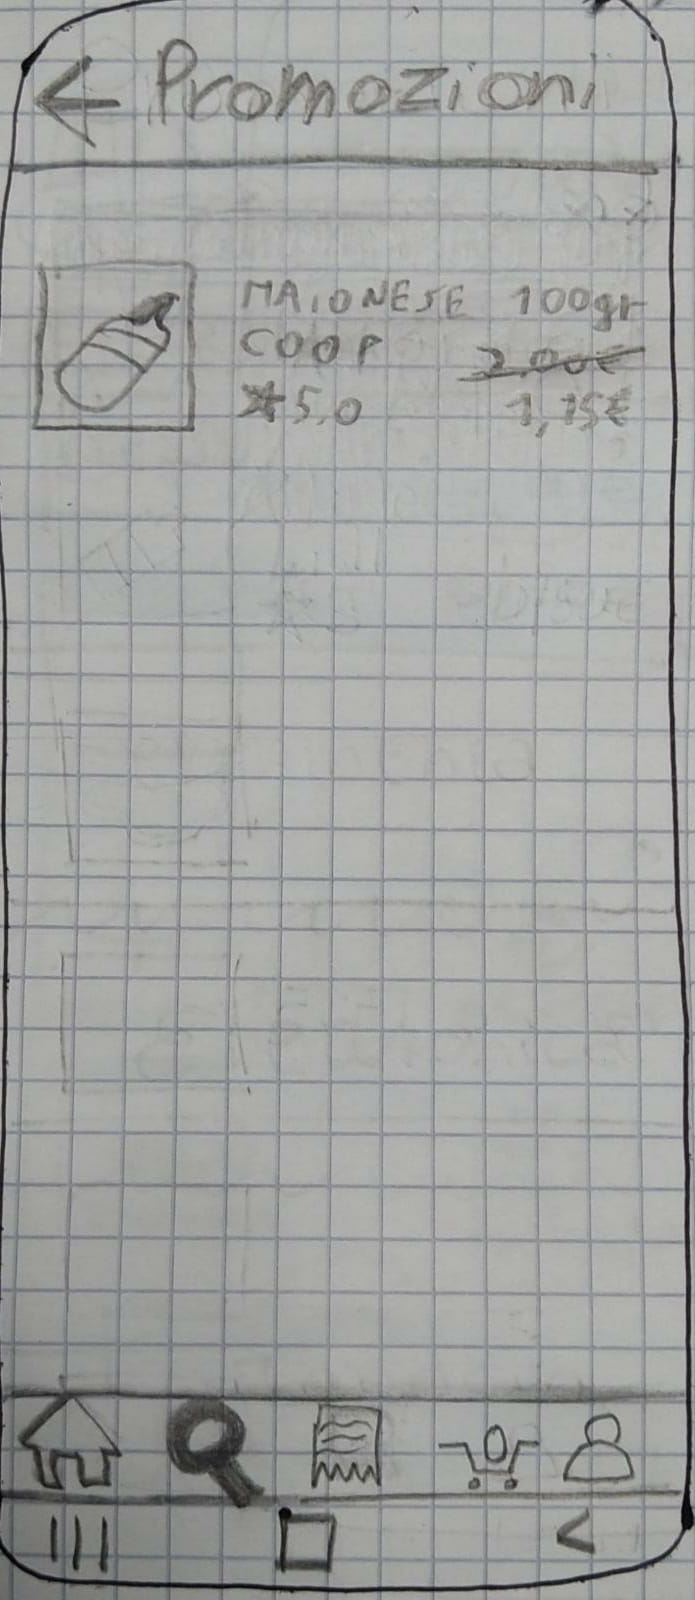 Promozioni
MAIONESE 100gr
COOP 2,00€
5,0 1,75€
0